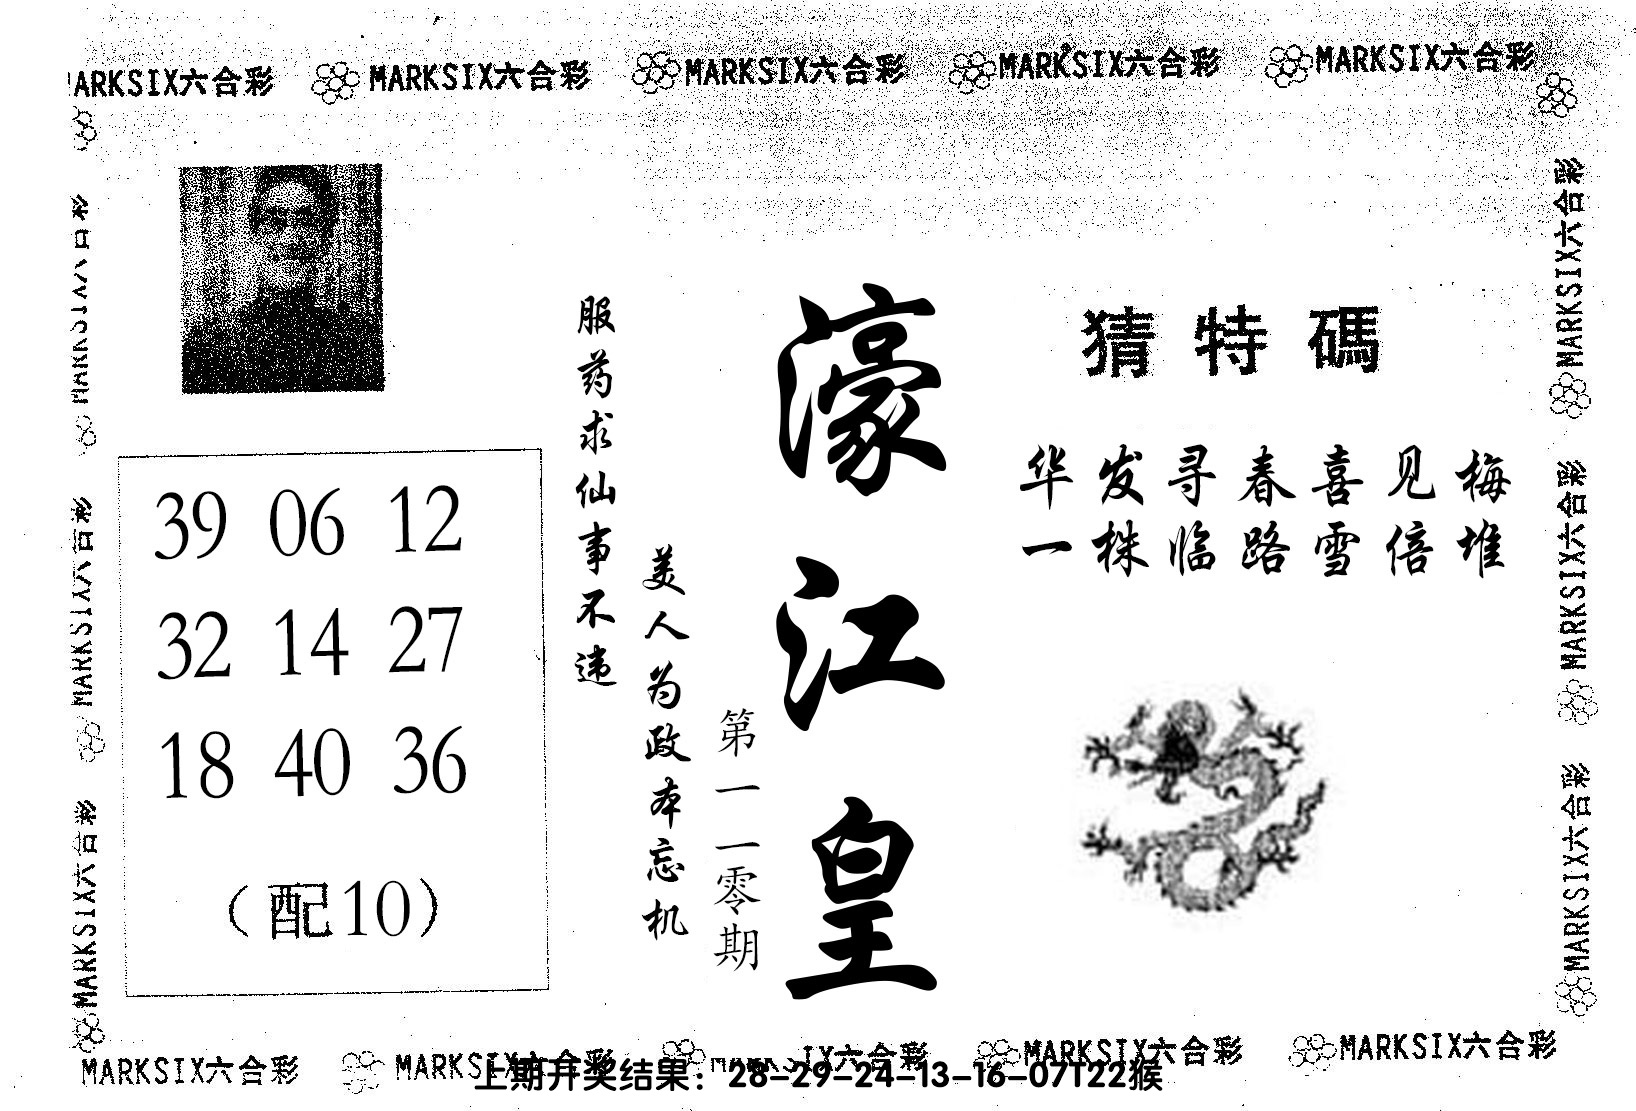 MARKSIX六合彩 MARKSIX六合彩 MARKSIX六合彩 MARKSIX六合彩
猜特碼
华发寻春喜见梅
一株临路雪倍堆
濠江皇
第一一零期
美人为政本忘机
服药求仙事不违
39 06 12
32 14 27
18 40 36
（配10）
MARKSIX六合彩
MARKSIX六合彩
MARKSIX六合彩
MARKSIX六合彩
MARKSIX六合彩
MARKSIX六合彩 MARKSIX六合彩 MARKSIX六合彩 MARKSIX六合彩
上期开奖结果：28-29-24-13-16-07T22猴